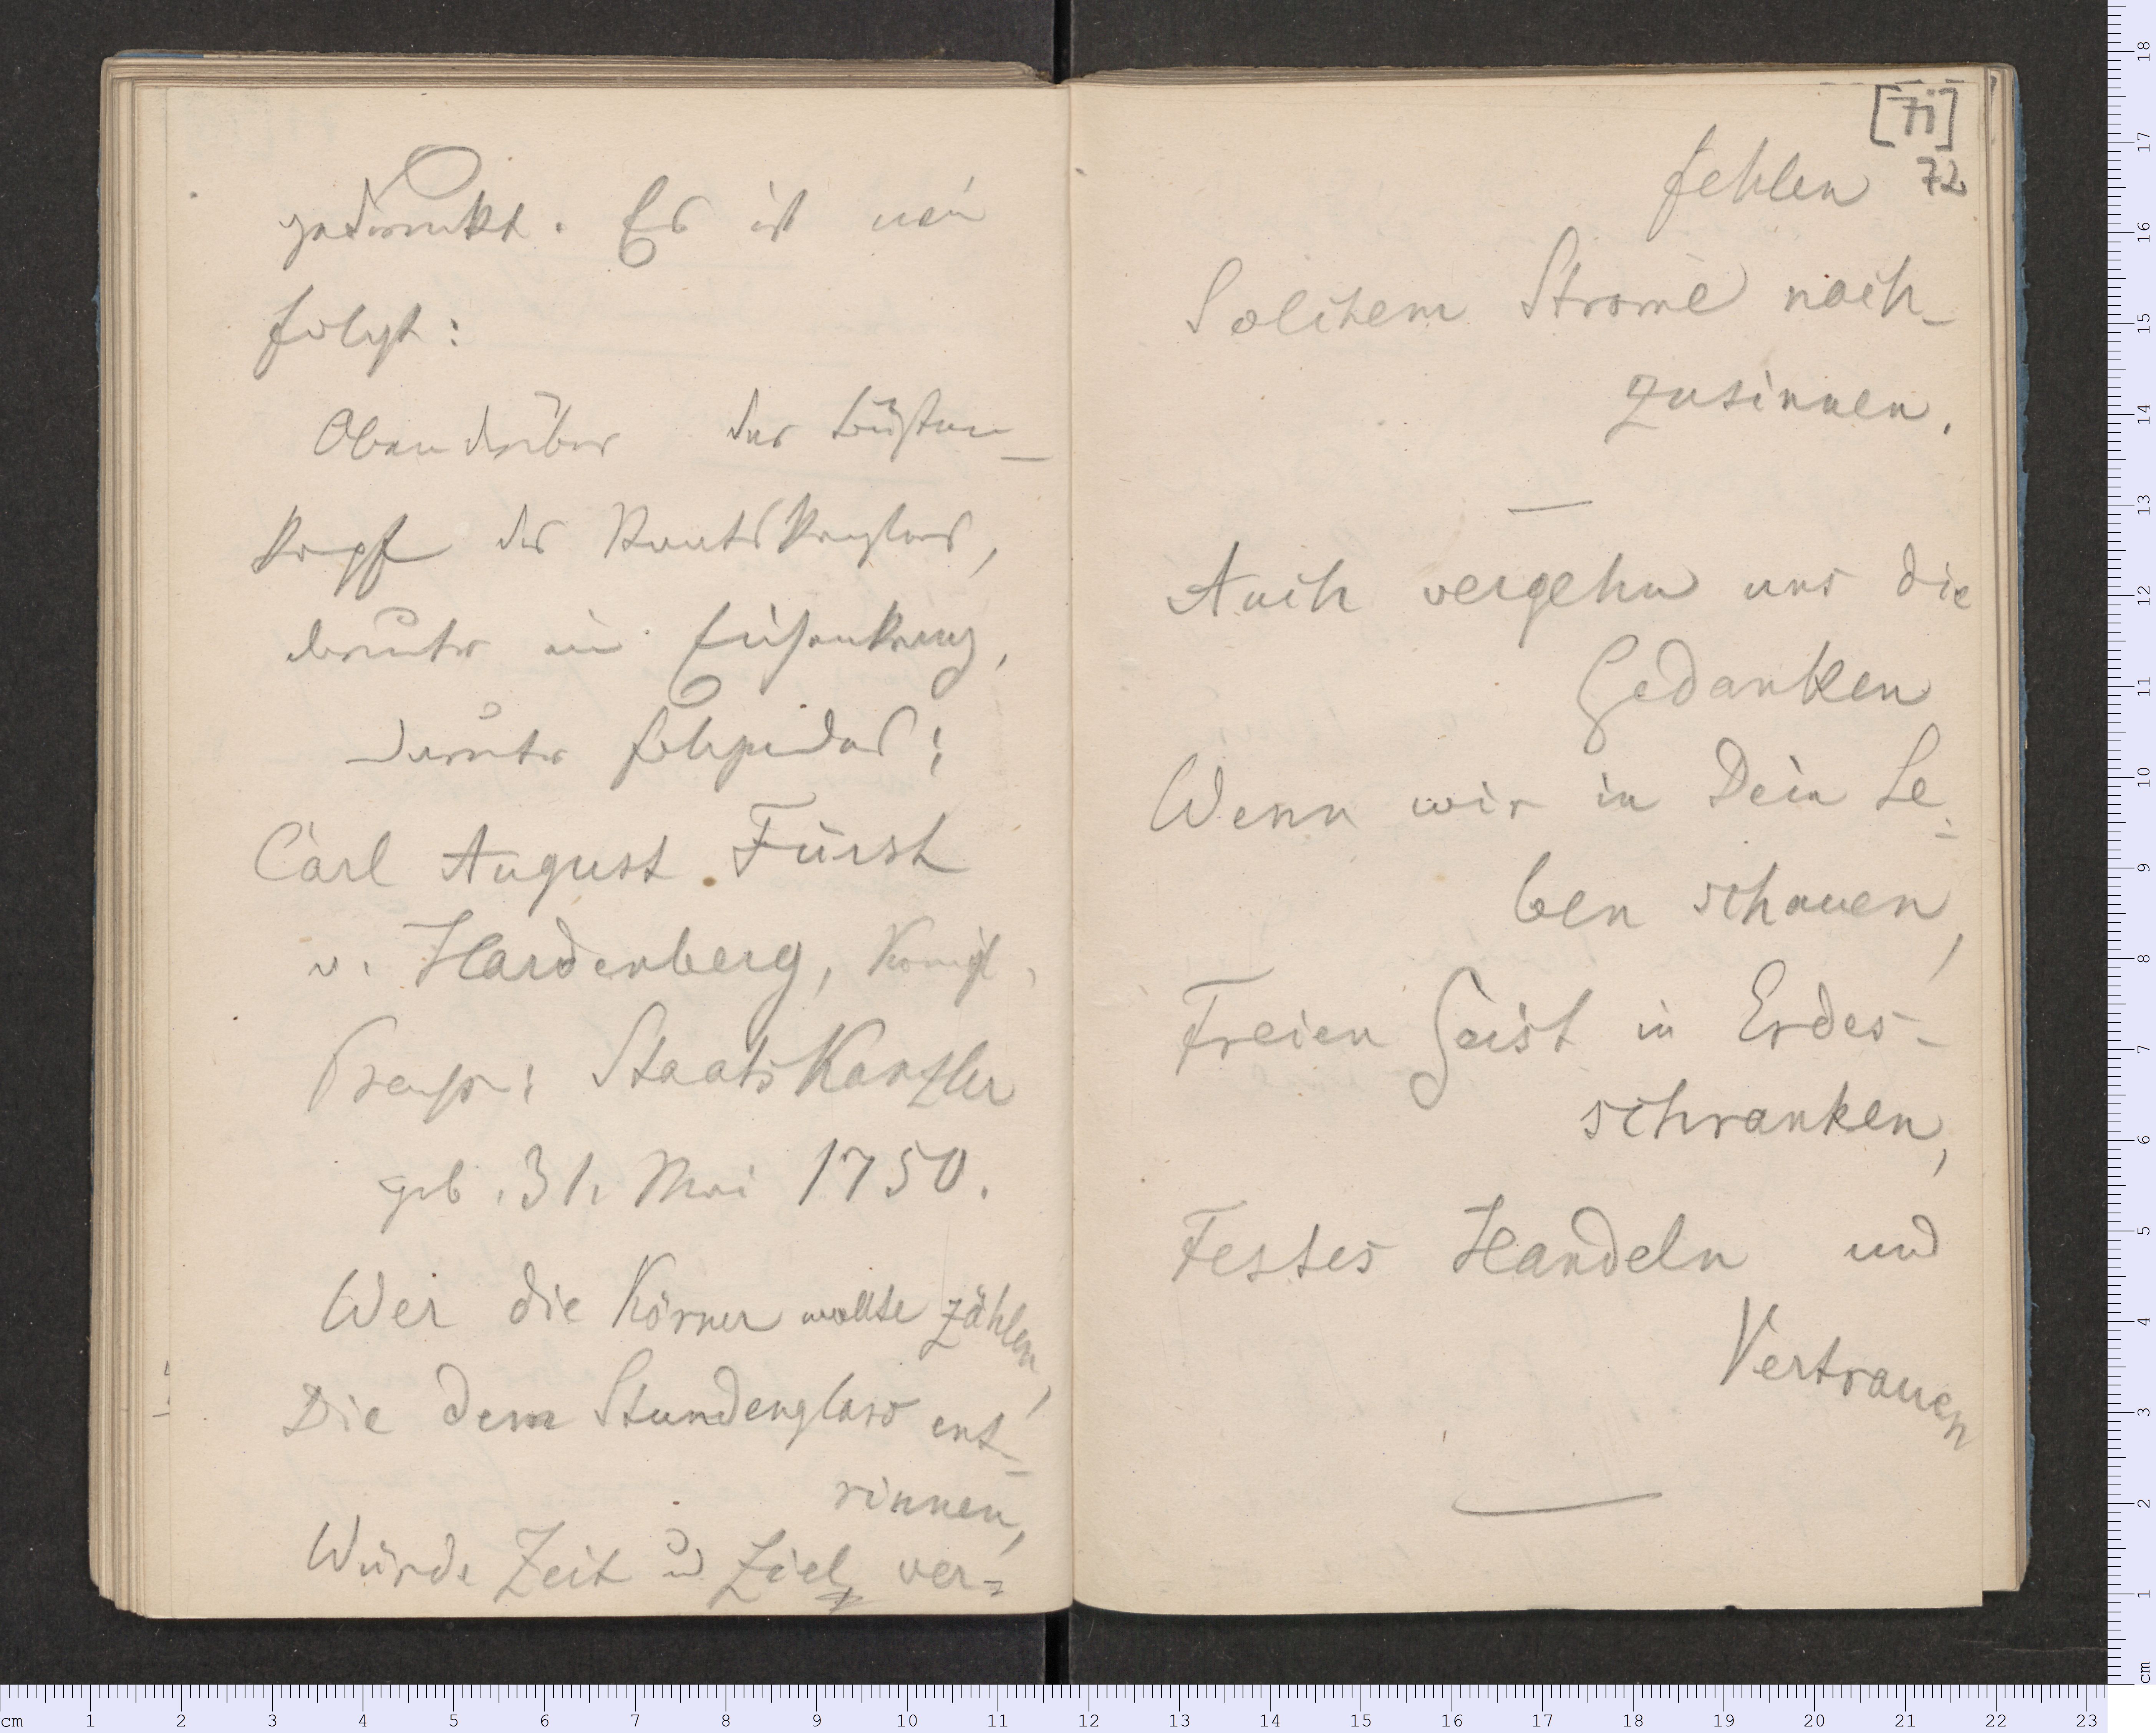 gedruckt. Es ist wie
folgt:
Oben drüber der Büsten-
kopf des Staatskanzlers,
drunter ein Eichenkranz,
drunter folgendes:
Carl August Fürst
v. Hardenberg, Königl.
Preuß: StaatsKanzler
geb. 31. Mai 1750.
Wer die Körner wollte zählen,
Die dem Stundenglas ent-
rinnen,
Würde Zeit u Ziel ver=
[71]
72
fehlen
Solchem Strome nach-
zusinnen.
Auch vergehn uns die
Gedanken
Wenn wir in Dein Le-
ben schauen,
Freien Geist in Erdes-
schranken,
Festes Handeln und
Vertrauen